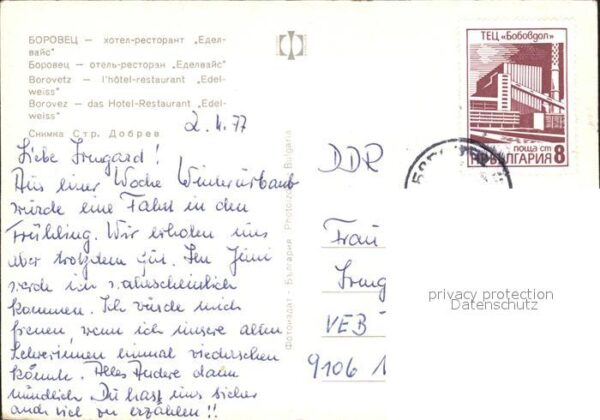 БОРОВЕЦ — хотел-ресторант „Едел-
вайс“
Боровец — отель-ресторан „Едельвайс“
Borovetz — l'hôtel-restaurant „Edel-
weiss“
Borovez — das Hotel-Restaurant „Edel-
weiss“
Снимка Стр. Добрев
2.4.77
Liebe Irmgard!
Aus einer Woche Winterurlaub
würde eine Fahrt in den
Frühling. Wir erholen uns
aber trotzdem gut. Im Juni
werde ich wahrscheinlich
kommen. Ich würde mich
freuen wenn ich unsere alten
Lehrerinnen einmal wiedersehen
könnte. Alles Andere dann
mündlich. Du hast uns sicher
auch viel zu erzählen!!
Фотоиздат - България Photoizdat Bulgaria
ТЕЦ „Бобовдол“
поща ст
НР БЪЛГАРИЯ 8
DDR
Frau
Irmg
VEB
9106
privacy protection
Datenschutz